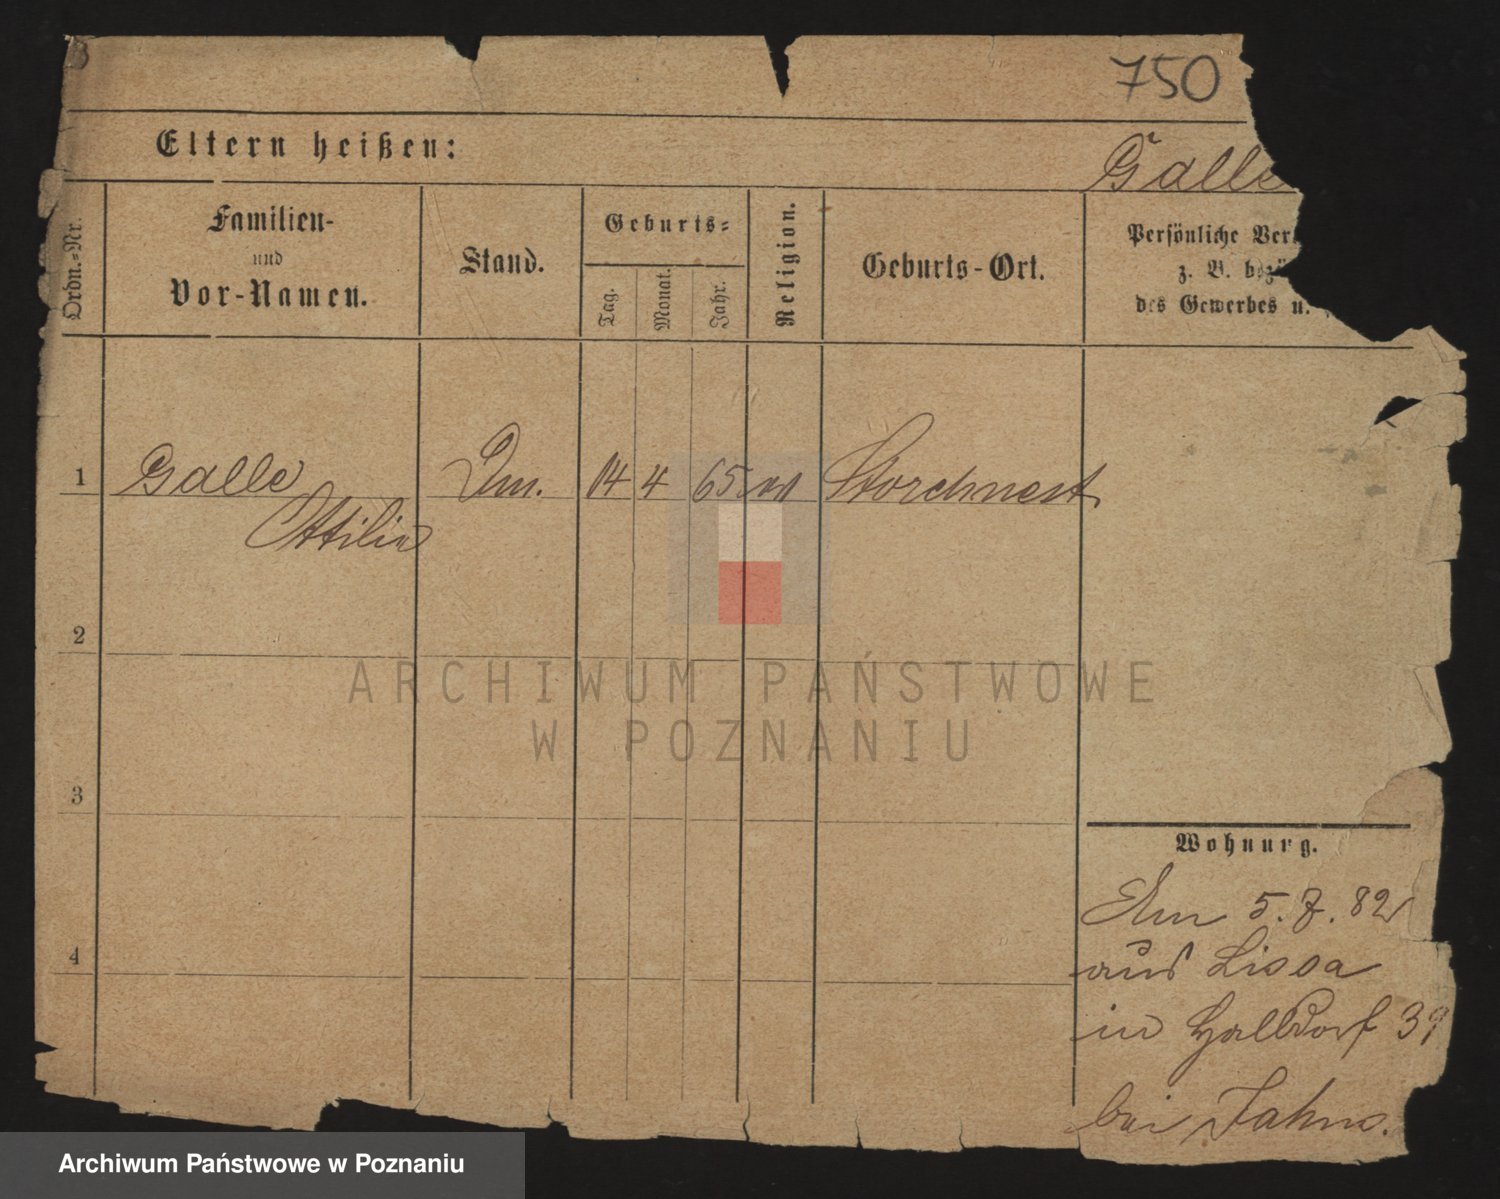 B
750
Eltern heißen:
Galle
Ordn.-Nr.
Familien-
und
Vor-Namen.
Stand.
Geburts-
Tag.
Monat.
Jahr.
Religion.
Geburts-Ort.
Persönliche Ver
z. B. bezü
des Gewerbes u.
1
Galle
Ottilie
Dm.
14
4
65
Storchnest
2
3
4
Wohnung.
Am 5.7.82
aus Lissa
in Halldorf 39
bei Jahns.
ARCHIWUM PAŃSTWOWE
W POZNANIU
Archiwum Państwowe w Poznaniu